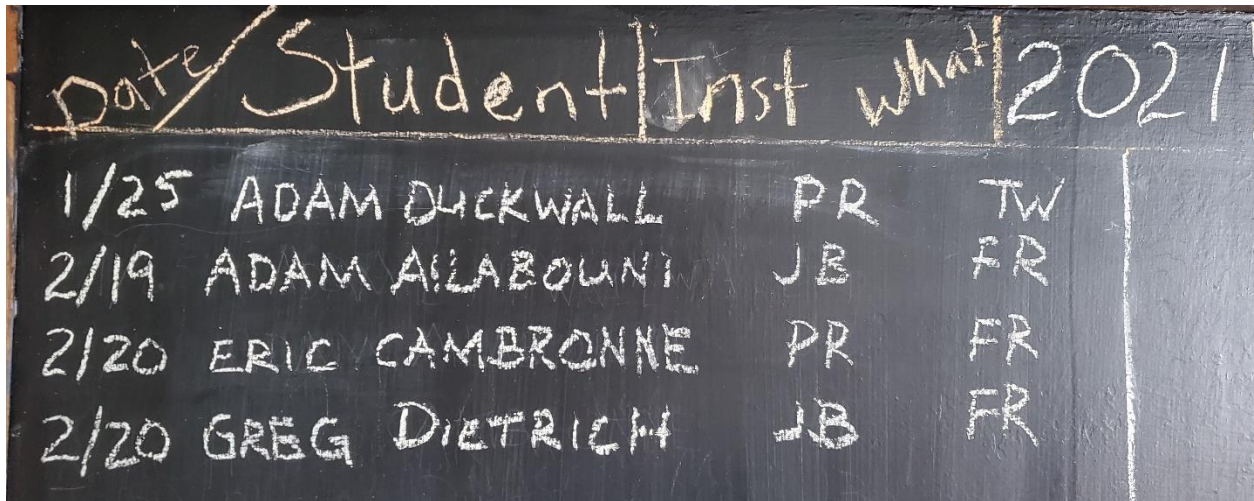 Date/Student|Inst what|2021
1/25 ADAM DUCKWALL PR TW
2/19 ADAM AILABOUNI JB FR
2/20 ERIC CAMBRONNE PR FR
2/20 GREG DIETRICH JB FR